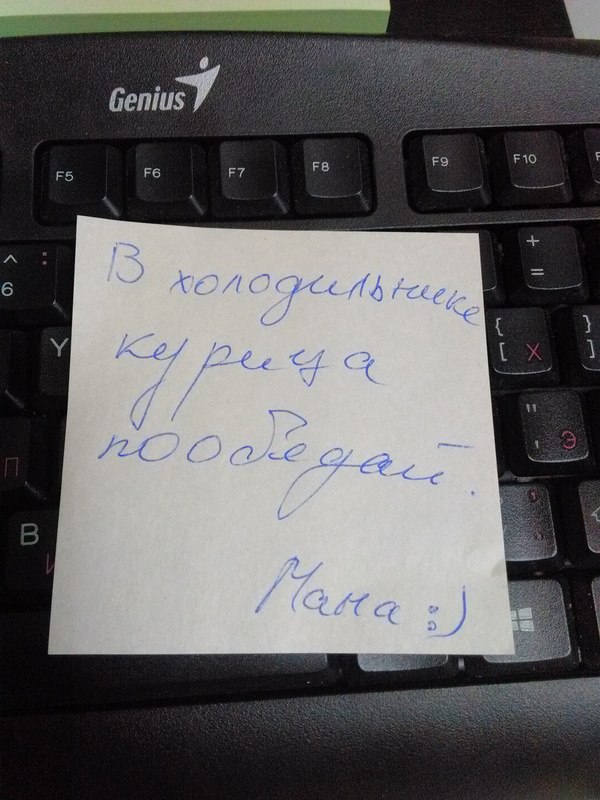 Genius
F5 F6 F7 F8 F9 F10
^ :
6
+
=
Y
{ }
[ Х ]
"
' Э
П
B
И
В холодильнике
курица
пообедай.
Мама :)